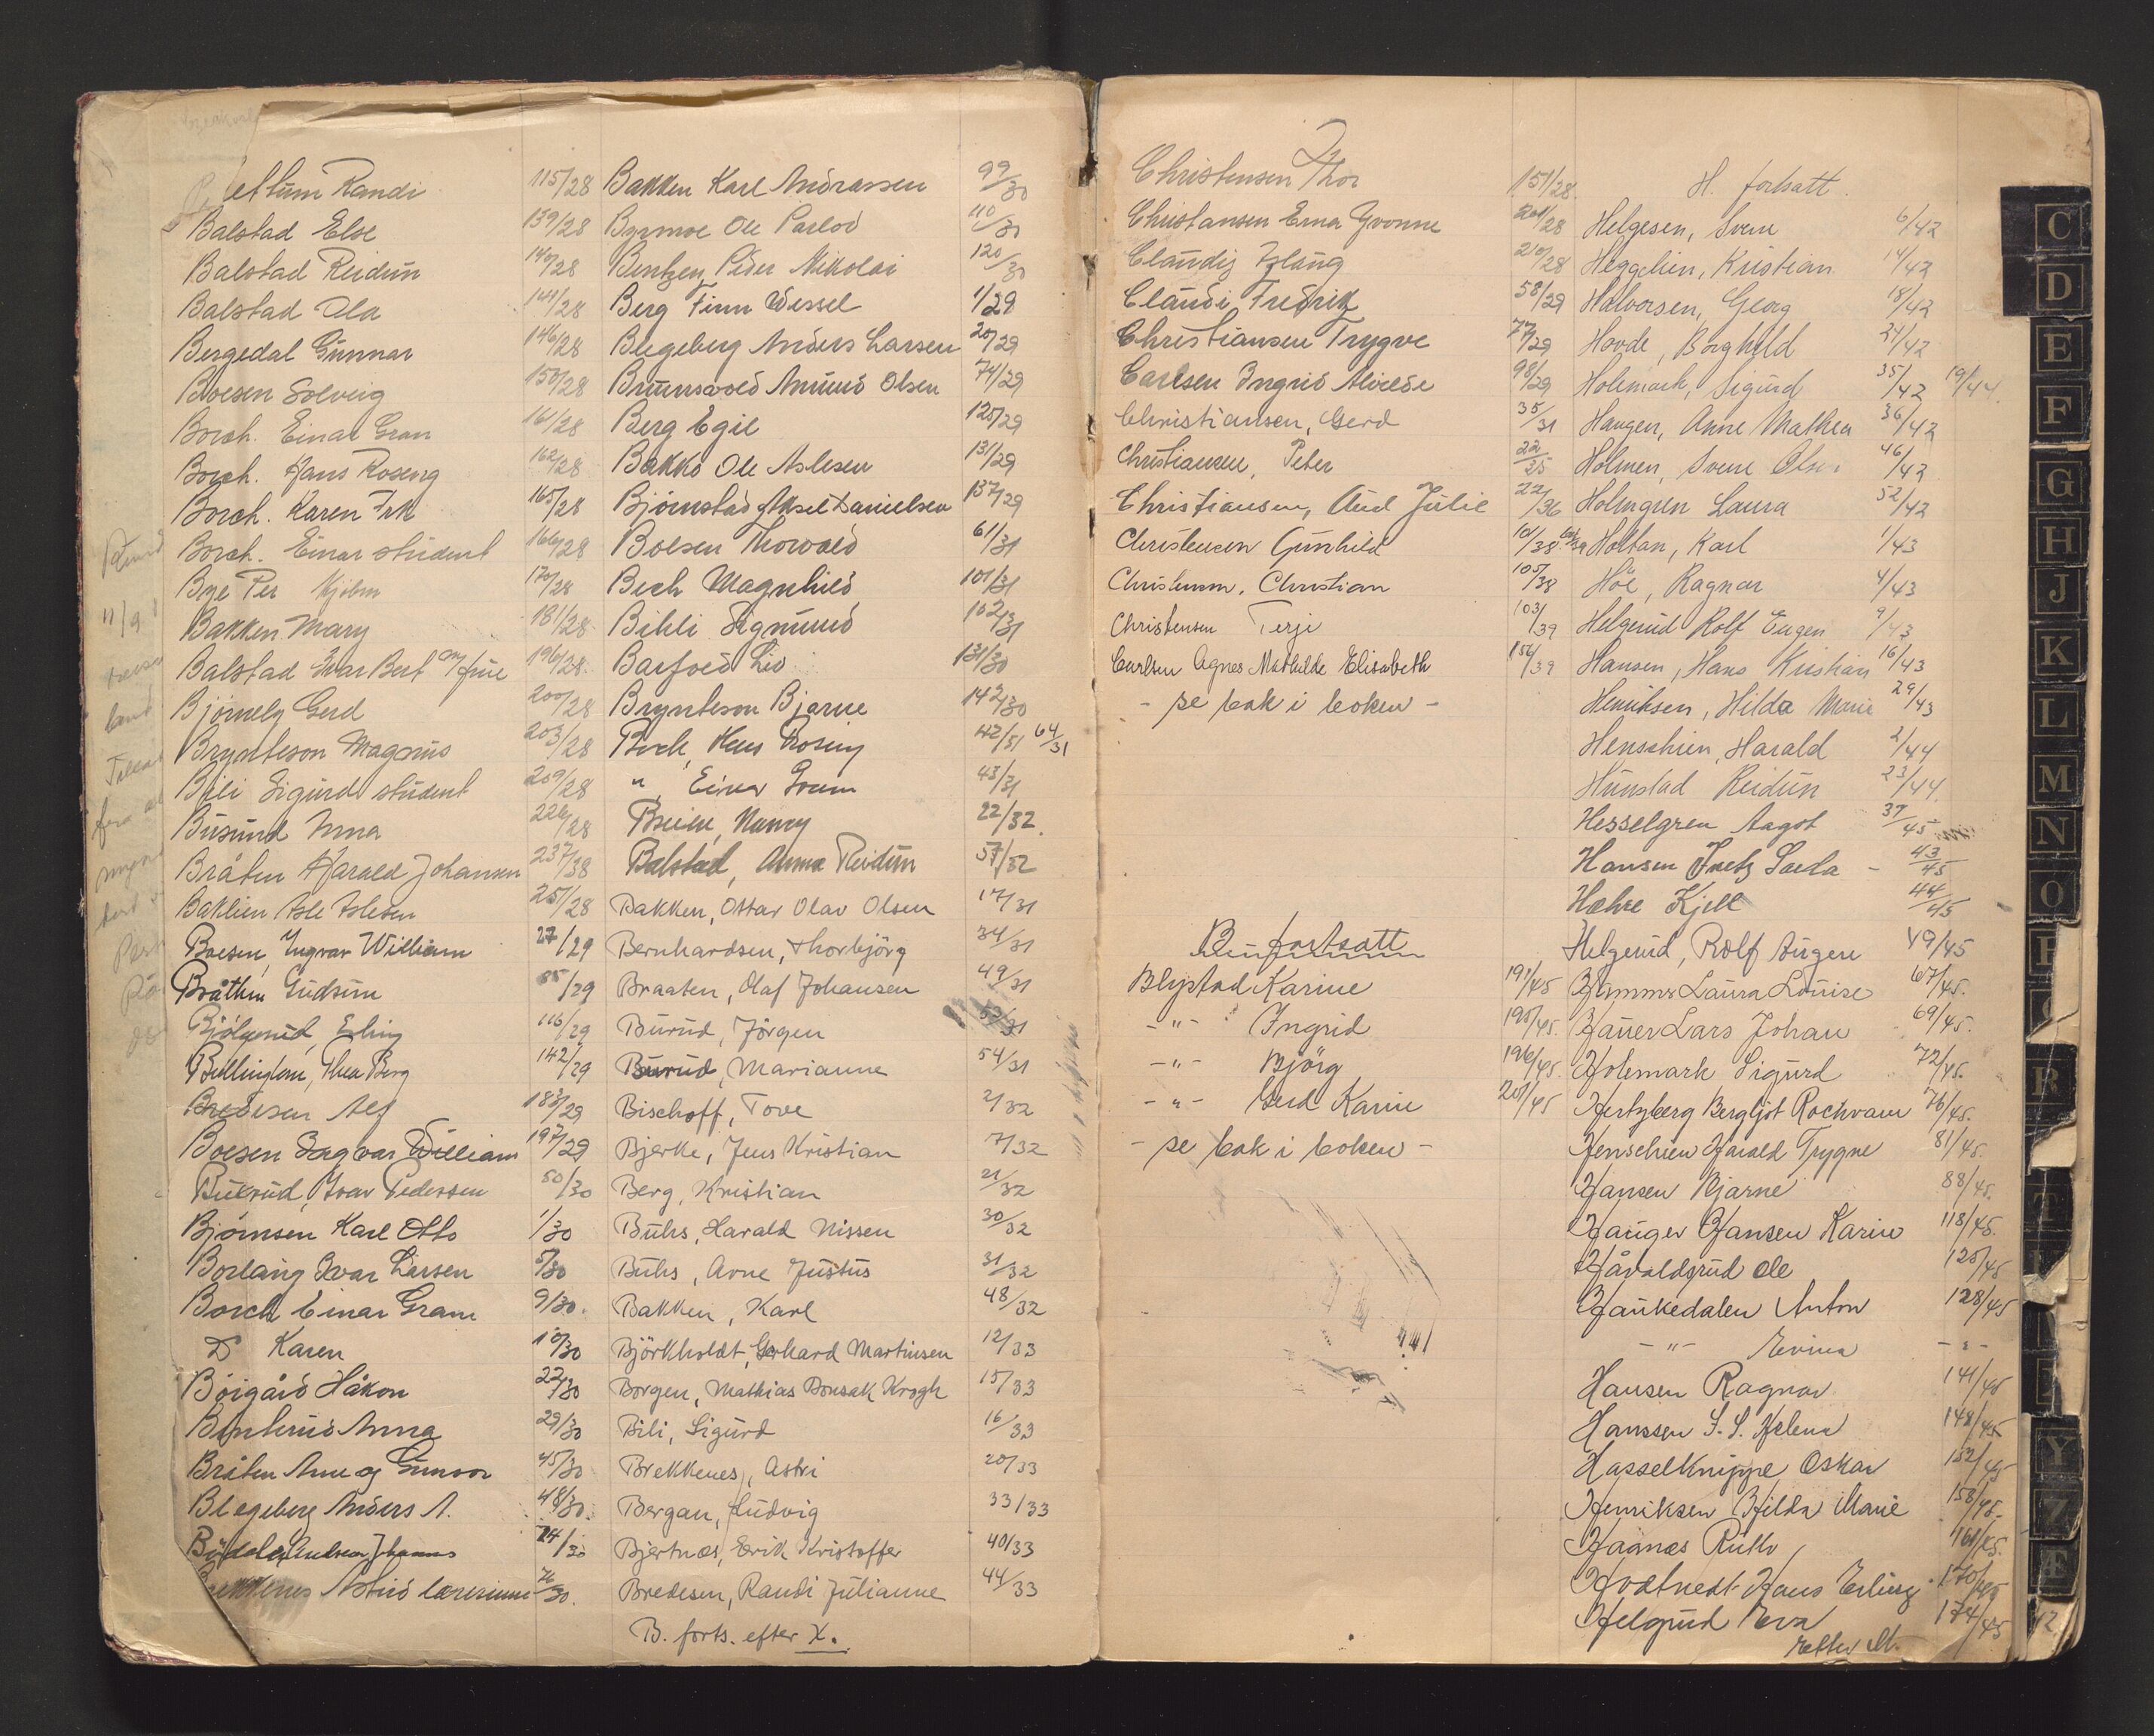 ettum Randi 115/28
Balstad Else 139/28
Balstad Reidun 140/28
Balstad Ola 141/28
Bergedal Gunnar 146/28
Boesen Solveig 150/28
Borch. Einar Gran 161/28
Borch. Hans Rosing 162/28
Borch. Karen Frk 165/28
Borch. Einar student 166/28
Bye Per 170/28
Bakken Mary 181/28
Balstad Ivar Bert og frue 196/28
Bjørnely Gerd 200/28
Brynteson Magnus 203/28
Bili Sigurd student 209/28
Busund Inna 226/28
Bråten Harald Johansen 237/38
Baklien Asle Aslesen 251/28
Boesen, Yngvar William 27/29
Bråthen Gudrun 85/29
Bjølgerud, Erling 116/29
Thea Berg 142/29
Bredesen Alf 183/29
Boesen Dagvar William 197/29
Ivar Pedersen 80/30
Bjørnsen Karl Otto 1/30
Borlaug Ivar Larsen 5/30
Borch Einar Gram 9/30.
Do Karen 10/30
Böigård Håkon 22/30
Anna 29/30
Bråten Anne og Gunvor 45/30
Blegeberg Anders A. 48/30.
24/30
Astrid lærerinne 76/30.
Bakken Karl Andrassen 99/30
Ole Parlov 110/30
Bentzen, Peder Nikolai 120/30
Berg Finn Wessel 1/29
Blegeberg Anders Larsen 20/29
Brunsvold Amund Olsen 74/29
Berg Egil 125/29
Bakko Ole Aslesen 131/29
Bjørnstad Aksel Danielsen 137/29
Boesen Thorvald 61/31
Bech Magnhild 101/31
Bihli Sigmund 162/31
Barfoed Liv 131/30
Brynteson Bjarne 142/30
Borch, Hans Rosing 42/31 64/31
" Einar Gram 43/31
Nancy 22/32.
Balstad, Anna Reidun 57/32
Bakken, Ottar Olav Olsen 17/31
Bernhardsen, Thorbjörg 34/31
Braaten, Olaf Johansen 49/31
Burud, Jörgen 53/31
Burud, Marianne 54/31
Bischoff, Tove 2/32
Bjerke, Jens Kristian 7/32
Berg, Kristian 21/32
Buhs, Harald Nissen 30/32
Buhs, Arne Justus 31/32
Bakken, Karl 48/32
Björkholdt, Gerhard Martinsen 12/33
Borgen, Mathias Bonsak Krogh 15/33
Bili, Sigurd 16/33
Brekkenes, Astri 20/33
Bergan, Ludvig 33/33
Bjertnæs, Erik Kristoffer 40/33
Bredesen, Randi Julianne 44/33
B. forts. efter X.
Christensen Thor 151/28.
Christansen Erna Yvonne 201/28
210/28
Claudi Fredrik 58/29
Christiansen Trygve 77/29
Carlsen Ingrid Alvilde 98/29
Christiansen, Gerd 35/31
Christiansen, Peter 22/35
Christiansen, Aud Julie 22/36
Christensen Gunhild 101/38
Christensen, Christian 105/38
Christensen Terje 103/39
Carlsen Agnes Mathilde Elisabeth 156/39
- se bak i boken -
B. fortsatt
Blystad Karine 191/45
-"- Ingrid 195/45.
-"- Bjørg 196/45.
-"- Gerd Karin 201/45
- se bak i boken -
H. fortsatt.
Helgesen, Svein 6/42
Heggelien, Kristian 14/42
Halvorsen, Georg 18/42
Hovde, Borghild 21/42
Holemark, Sigurd 35/42 19/44.
Haugen, Anne Mathea 36/42
Holmen, Svein Olsen 46/42
Holmgren Laura 52/42
Holtan, Karl 1/43
Höe, Ragnar 4/43
Helgerud Rolf Eugen 9/43
Hansen, Hans Kristian 16/43
Henriksen, Hilda Marie 29/43
Henschien, Harald 2/44
Hunstad Reidun 23/44.
Hesselgren Aagot 37/45
Hansen Fretz Saela - 43/45
Hæhre Kjell 44/45
Helgerud, Rolf Augen 49/45
Hammer Laura Louise 67/45.
Hauer Lars Johan 69/45.
Holemark Sigurd 72/45.
Hertzberg Bergljot Rochvam 76/45.
Henschien Harald Trygve 81/45.
Hansen Bjarne 88/45.
Hauger Hansen Karin 118/45.
Håvaldsrud Ole 125/45
Haukedalen Anton 128/45
-"- Evina -"-
Hansen Ragnar 141/45
Hanssen S. S. Helena 148/45
Hasselknippe Oskar 152/45
Henriksen Hilda Marie 158/45.
Haanæs Ruth 161/45.
Hans Erling 170/45
Helgrud Eva 174/45
Efter M.
C
D
E
F
G
H
J
K
L
M
N
O
R
T
Y
Z
Æ